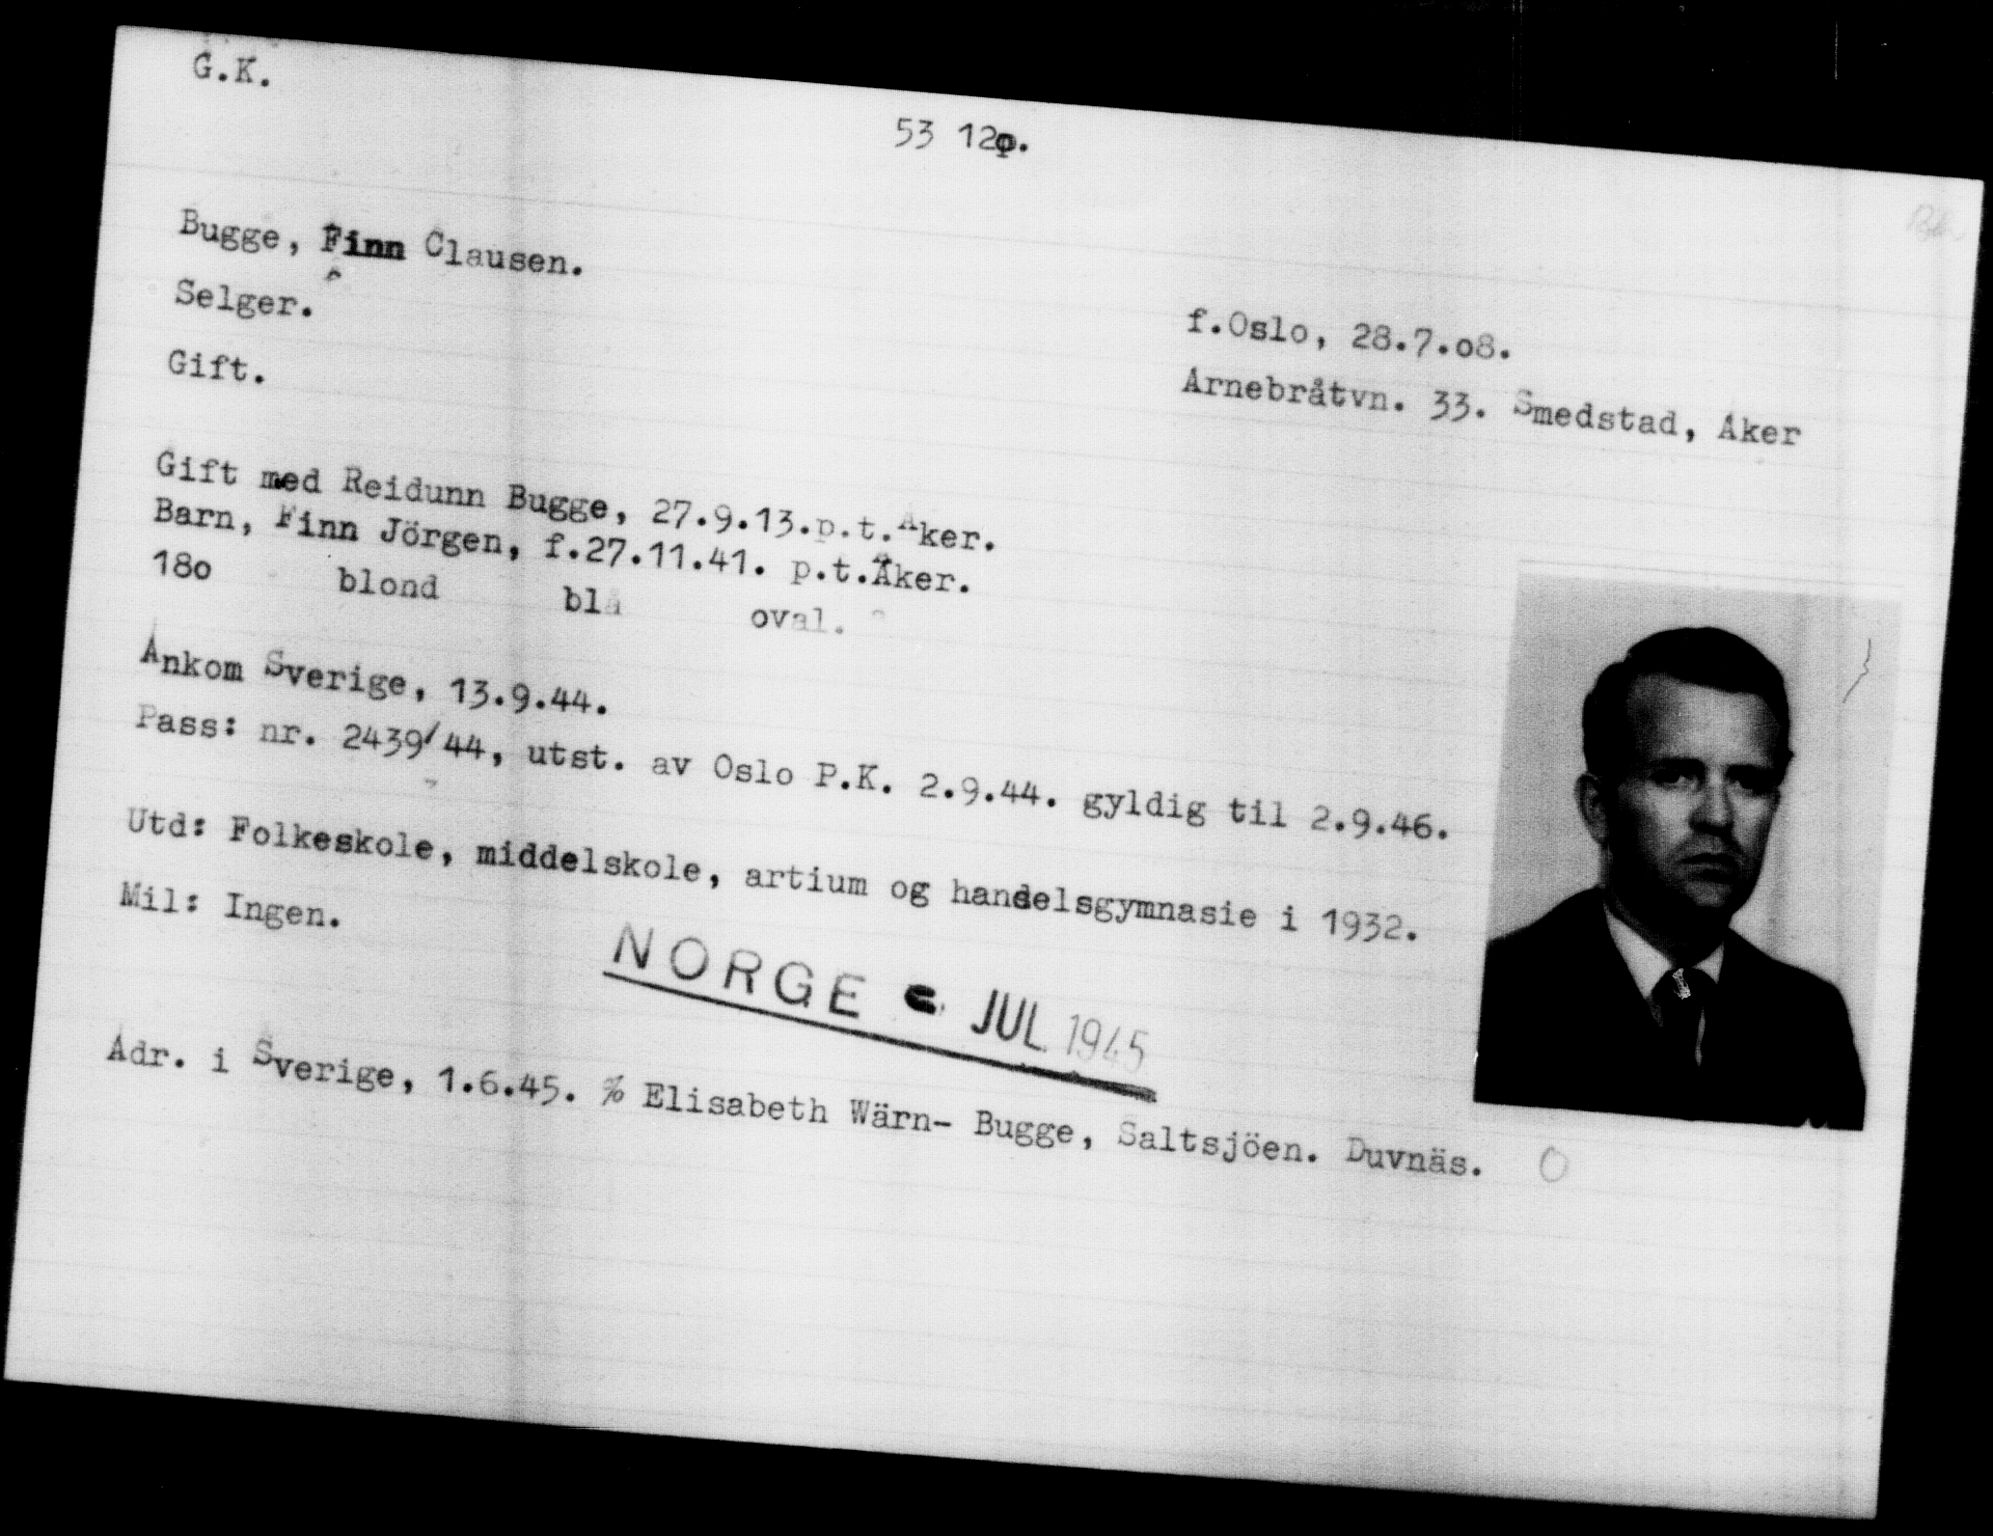 G.K.
53 12
Bugge, Finn Clausen.
Selger.
f.Oslo, 28.7.08.
Gift.
Arnebråtvn. 33. Smedstad, Aker
Gift med Reidunn Bugge, 27.9.13.p.t.Aker.
Barn, Finn Jörgen, f.27.11.41. p.t.Aker.
18o blond blå oval.
Ankom Sverige, 13.9.44.
Pass: nr. 2439/44, utst. av Oslo P.K. 2.9.44. gyldig til 2.9.46.
Utd: Folkeskole, middelskole, artium og handelsgymnasie i 1932.
Mil: Ingen.
NORGE JUL 1945
Adr. i Sverige, 1.6.45. % Elisabeth Wärn- Bugge, Saltsjöen. Duvnäs.